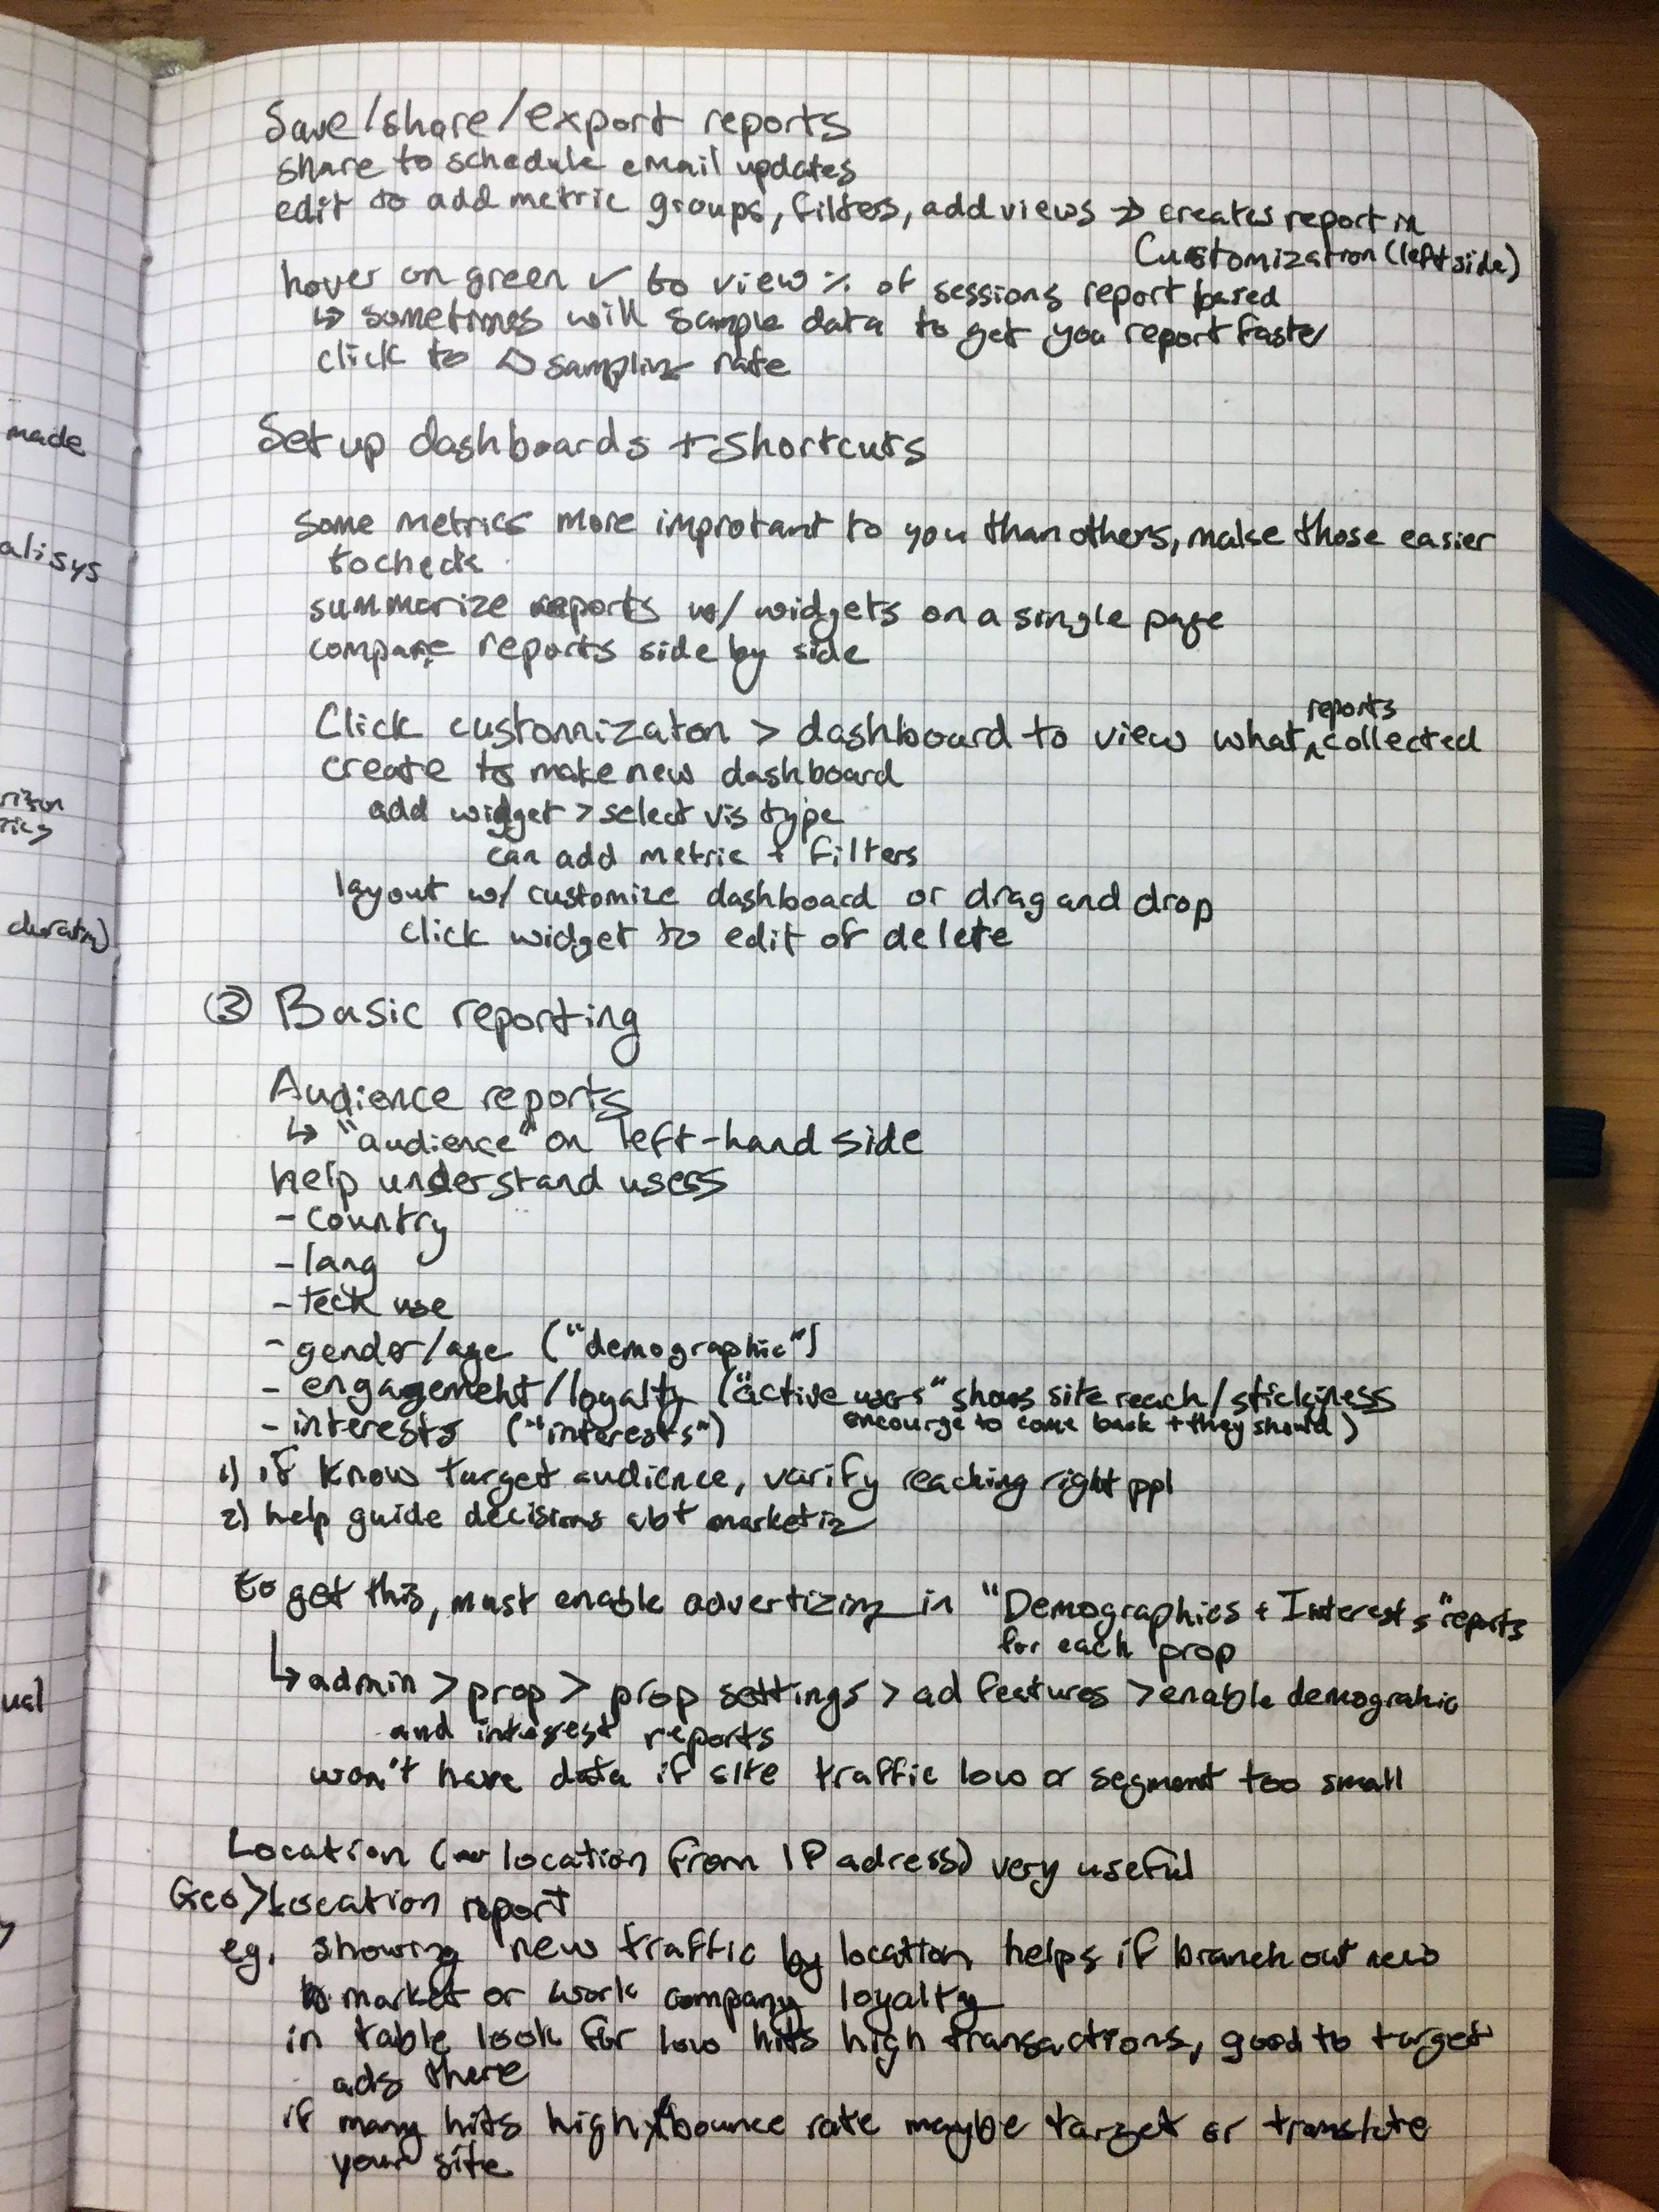 made
alisys
duration)
ual
Save/share/export reports
share to schedule email updates
edit to add metric groups, filters, add views → creates report in
Customization (left side)
hover on green ✓ to view % of sessions report based
↳ sometimes will sample data to get you report faster
click to △ sampling rate
Set up dashboards + shortcuts
Some metrics more improtant to you than others, make those easier
to check
summarize reports w/ widgets on a single page
compare reports side by side
reports
Click customizaton > dashboard to view what ^ collected
create to make new dashboard
add widget > select vis type
can add metric + filters
layout w/ customize dashboard or drag and drop
click widget to edit or delete
③ Basic reporting
Audience reports
↳ "audience" on left-hand side
help understand users
- country
- lang
- teck use
- gender/age ("demographic")
- engagement/loyalty ("active users" shows site reach/stickiness
encourge to come back + they should)
- interests ("interests")
1) if know target audience, varify reaching right ppl
2) help guide decisions abt marketing
to get this, must enable advertizing in "Demographics + Interests" reports
for each prop
↳ admin > prop > prop settings > ad features > enable demograhic
and interest reports
won't have data if site traffic low or segment too small
Location (location from IP adress) very useful
Geo > Location report
eg. showing new traffic by location helps if branch out new
market or work company loyalty
in table look for low hits high transactions, good to target
ads there
if many hits high bounce rate maybe target or translate
your site